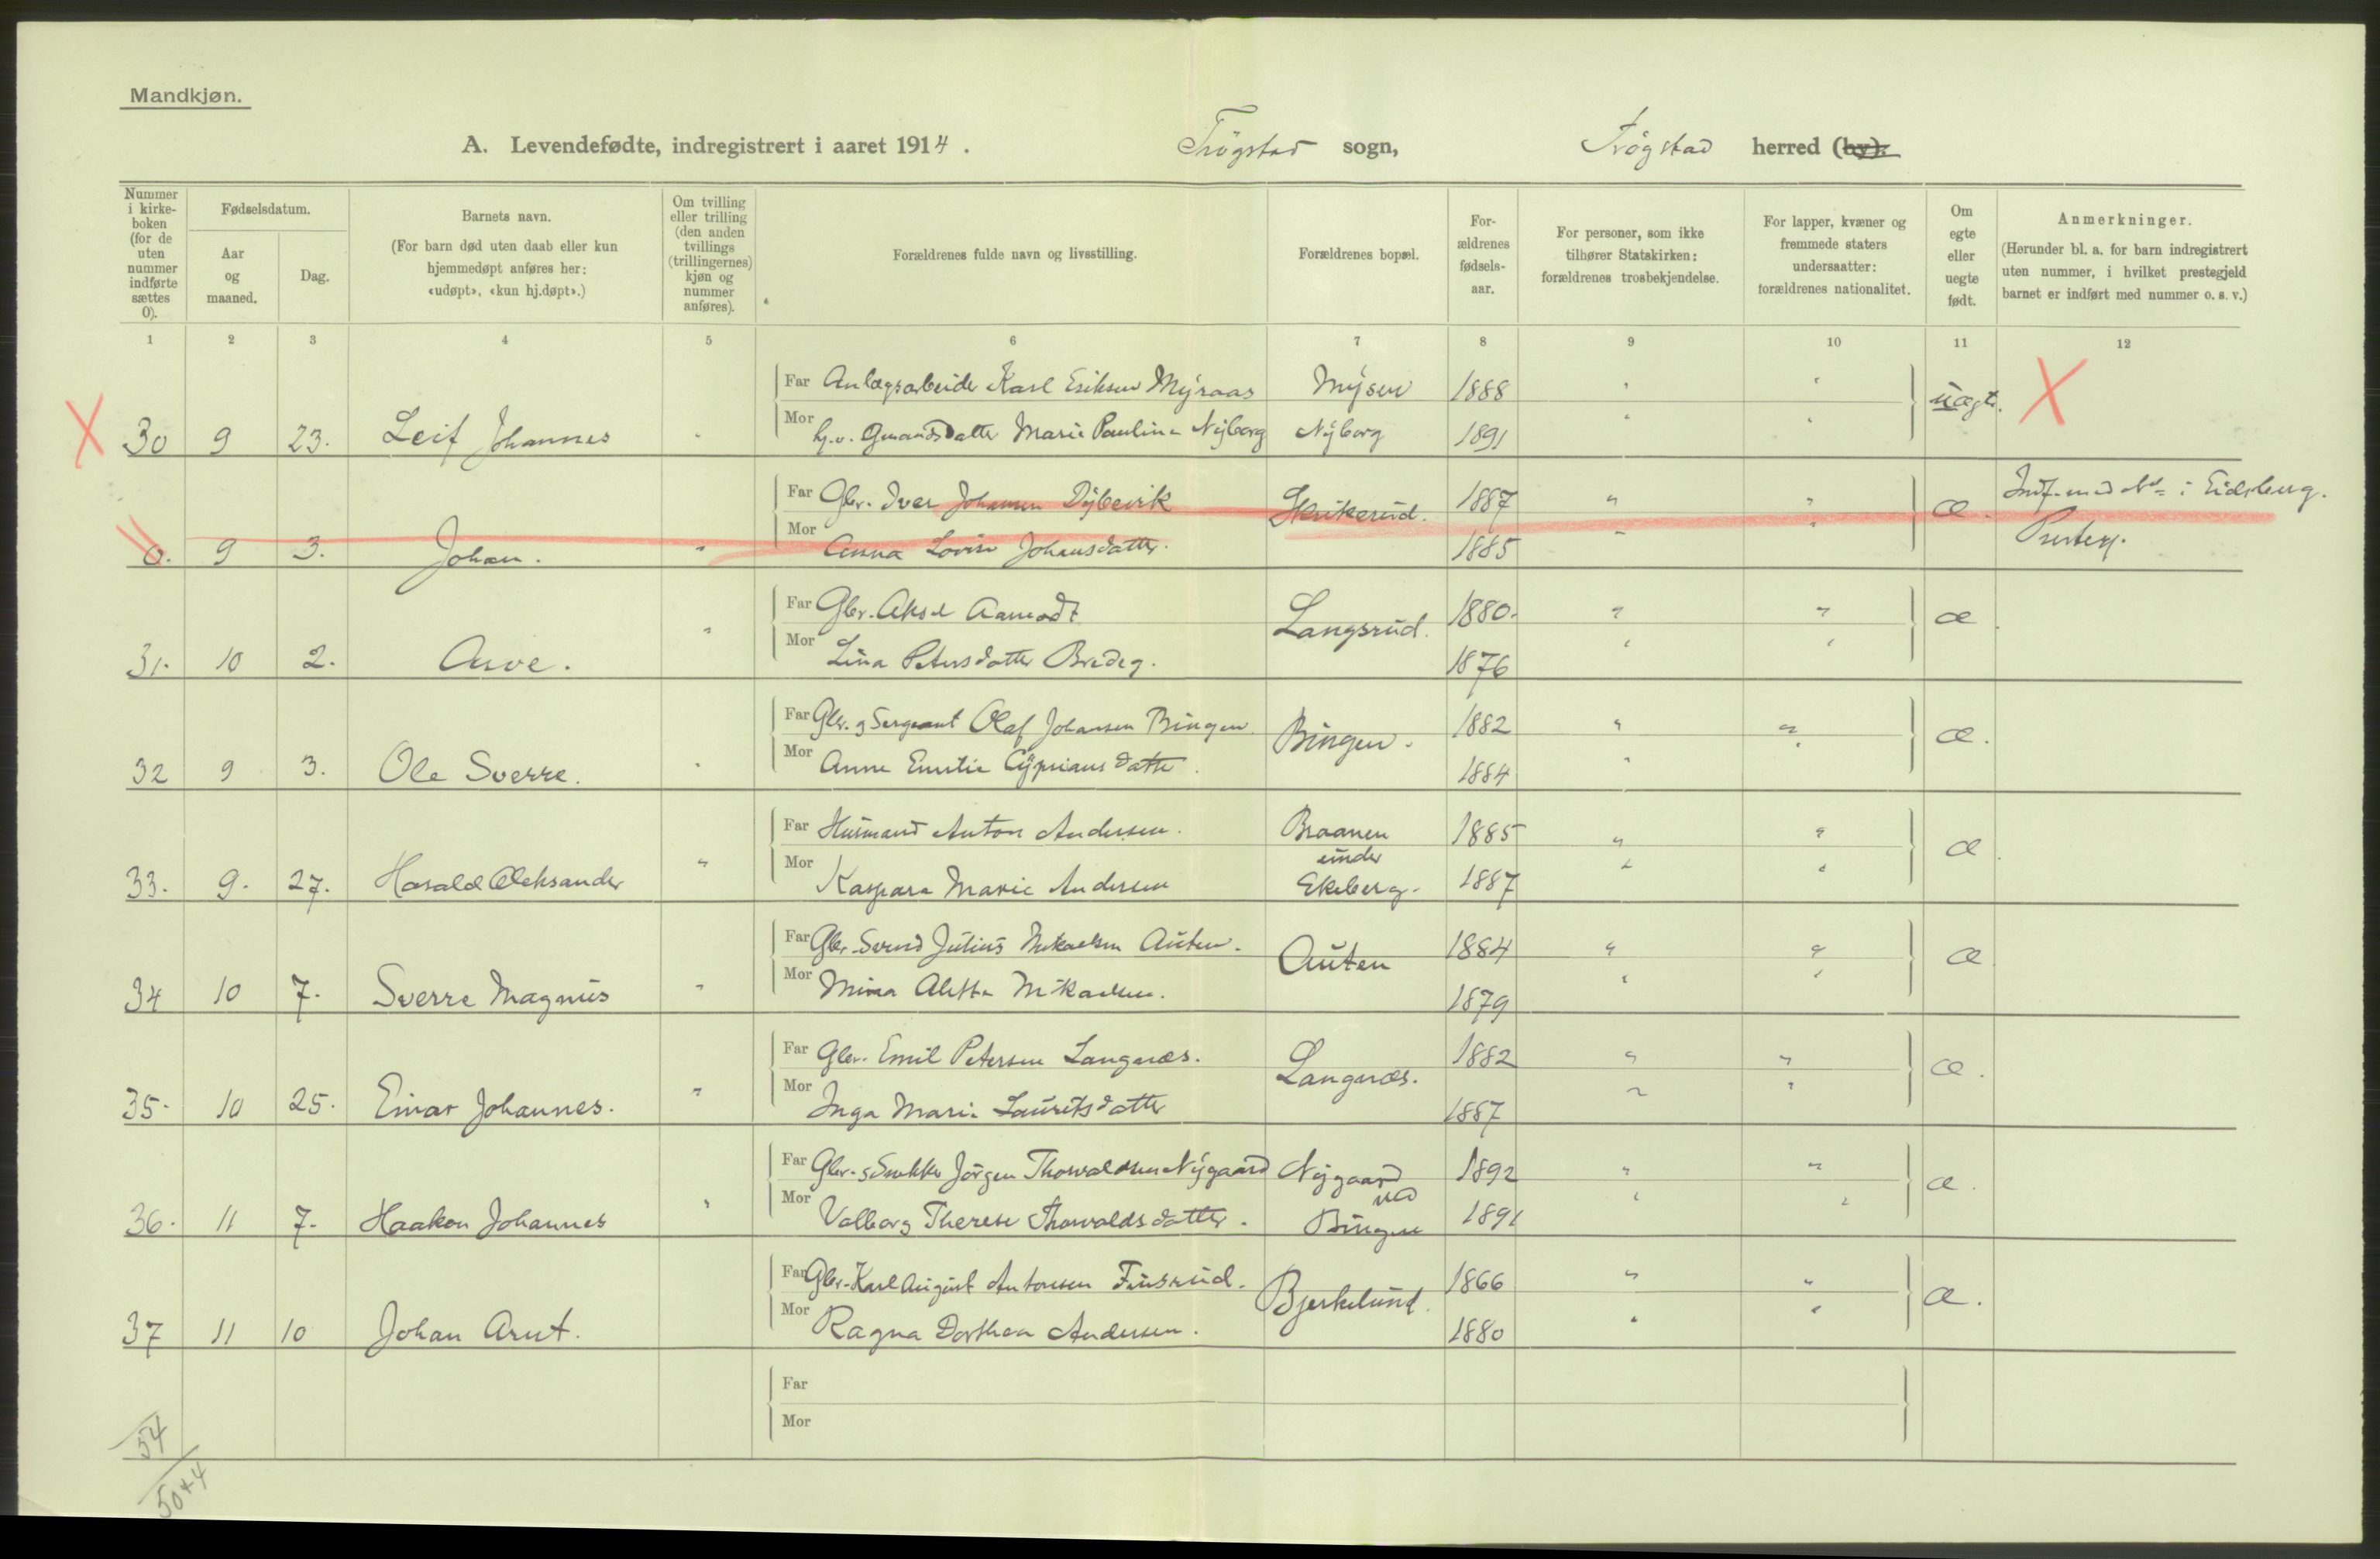 Mandkjøn.
A. Levendefødte, indregistrert i aaret 1914. Trögstad sogn, Trögstad herred (by).
Nummer i kirkeboken (for de uten nummer indførte sættes 0).
Fødselsdatum.
Aar og maaned.
Dag.
Barnets navn.
(For barn død uten daab eller kun hjemmedøpt anføres her: «udøpt», «kun hj.døpt».)
Om tvilling eller trilling (den anden tvillings (trillingernes) kjøn og nummer anføres).
Forældrenes fulde navn og livsstilling.
Forældrenes bopæl.
Forældrenes fødselsaar.
For personer, som ikke tilhører Statskirken: forældrenes trosbekjendelse.
For lapper, kvæner og fremmede staters undersaatter: forældrenes nationalitet.
Om egte eller uegte født.
Anmerkninger.
(Herunder bl. a. for barn indregistrert uten nummer, i hvilket prestegjeld barnet er indført med nummer o. s. v.)
1 2 3 4 5 6 7 8 9 10 11 12
Far Anlægsarbeider Karl Eriksen Myraas Mysen 1888 " " uægte. X
X 30 9 23. Leif Johannes " Mor Gmandsdatter Marie Pauline Nyborg Nyborg 1891 " "
Far Gbr. Iver Johansen Dybevik Skrikerud. 1887 " " æ. Indf. med No i Eidsberg.
0. 9 3. Johan. " Mor Anna Lovise Johansdatter. 1885 " " Prestegj.
Far Gbr. Aksel Aamodt Langsrud. 1880. " " æ.
31. 10 2. Arve. " Mor Lina Petersdatter Bredeg. 1876 " "
Far Gbr. og Sergeant Olaf Johansen Bingen Bingen. 1882 " " æ.
32 9 3. Ole Sverre. " Mor Anne Emilie Cypriansdatter. 1884 " "
Far Husmand Anton Andersen. Braanen under Ekeberg. 1885 " " æ.
33. 9. 27. Harald Aleksander " Mor Kaspara Marie Andersen 1887 " "
Far Gbr. Svend Julius Mikaelsen Auten. Auten 1884 " " æ
34 10 7. Sverre Magnus " Mor Mina Alette Mikaelsen. 1879 " "
Far Gbr. Emil Petersen Langnæs. Langnæs. 1882 " " æ.
35. 10 25. Einar Johannes. " Mor Inga Marie Lauritsdatter 1887 " "
Far Gbr. og Snekker Jörgen Thorvaldsen Nygaard Nygaard ved Bingen 1892 " " æ.
36. 11 7. Haakon Johannes " Mor Valborg Therese Thorvaldsdatter. 1891 " "
Far Gbr. Karl August Antonsen Fusrud. Bjerkelund. 1866 " " æ.
37 11 10 Johan Arnt. Mor Ragna Dorthea Andersen. 1880 " "
Far
Mor
54
50+4